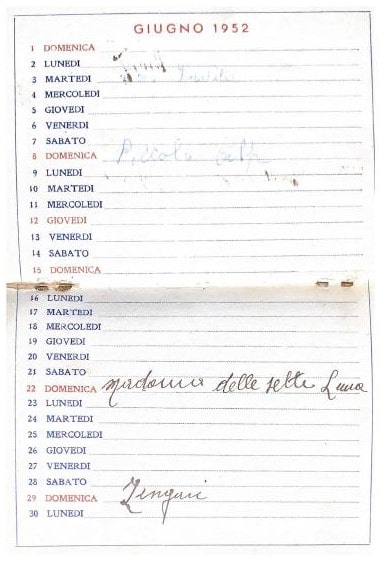 GIUGNO 1952
1 DOMENICA
2 LUNEDI
3 MARTEDI
4 MERCOLEDI
5 GIOVEDI
6 VENERDI
7 SABATO
8 DOMENICA Piccola
9 LUNEDI
10 MARTEDI
11 MERCOLEDI
12 GIOVEDI
13 VENERDI
14 SABATO
15 DOMENICA
16 LUNEDI
17 MARTEDI
18 MERCOLEDI
19 GIOVEDI
20 VENERDI
21 SABATO
22 DOMENICA Madonna delle sette Luna
23 LUNEDI
24 MARTEDI
25 MERCOLEDI
26 GIOVEDI
27 VENERDI
28 SABATO
29 DOMENICA Zingari
30 LUNEDI